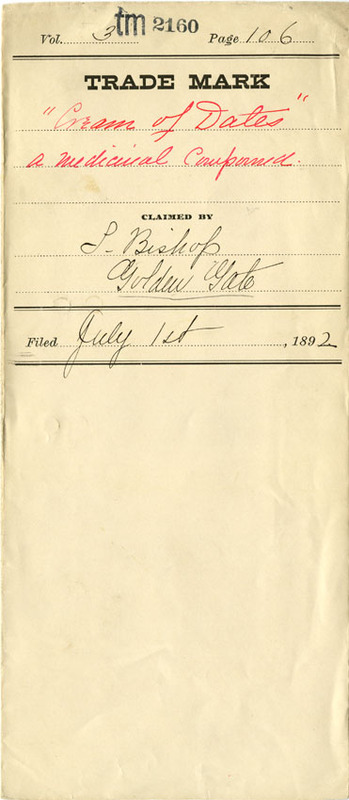 Vol. 3 tm 2160 Page 106
TRADE MARK
"Cream of Dates"
a medicinal Compound.
CLAIMED BY
S. Bishop
Golden Gate
Filed July 1st, 1892